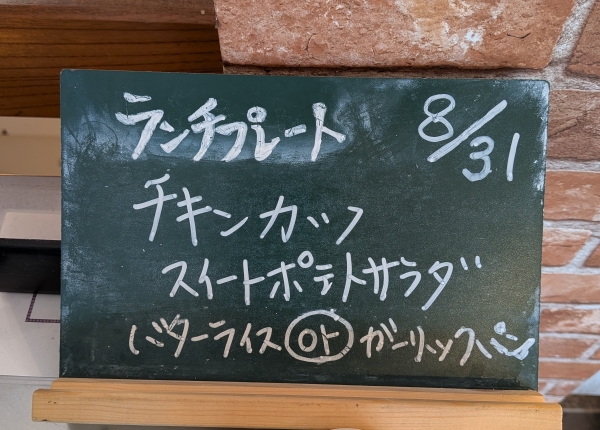 ランチプレート 8/31
チキンカツ
スイートポテトサラダ
バターライス or ガーリックパン